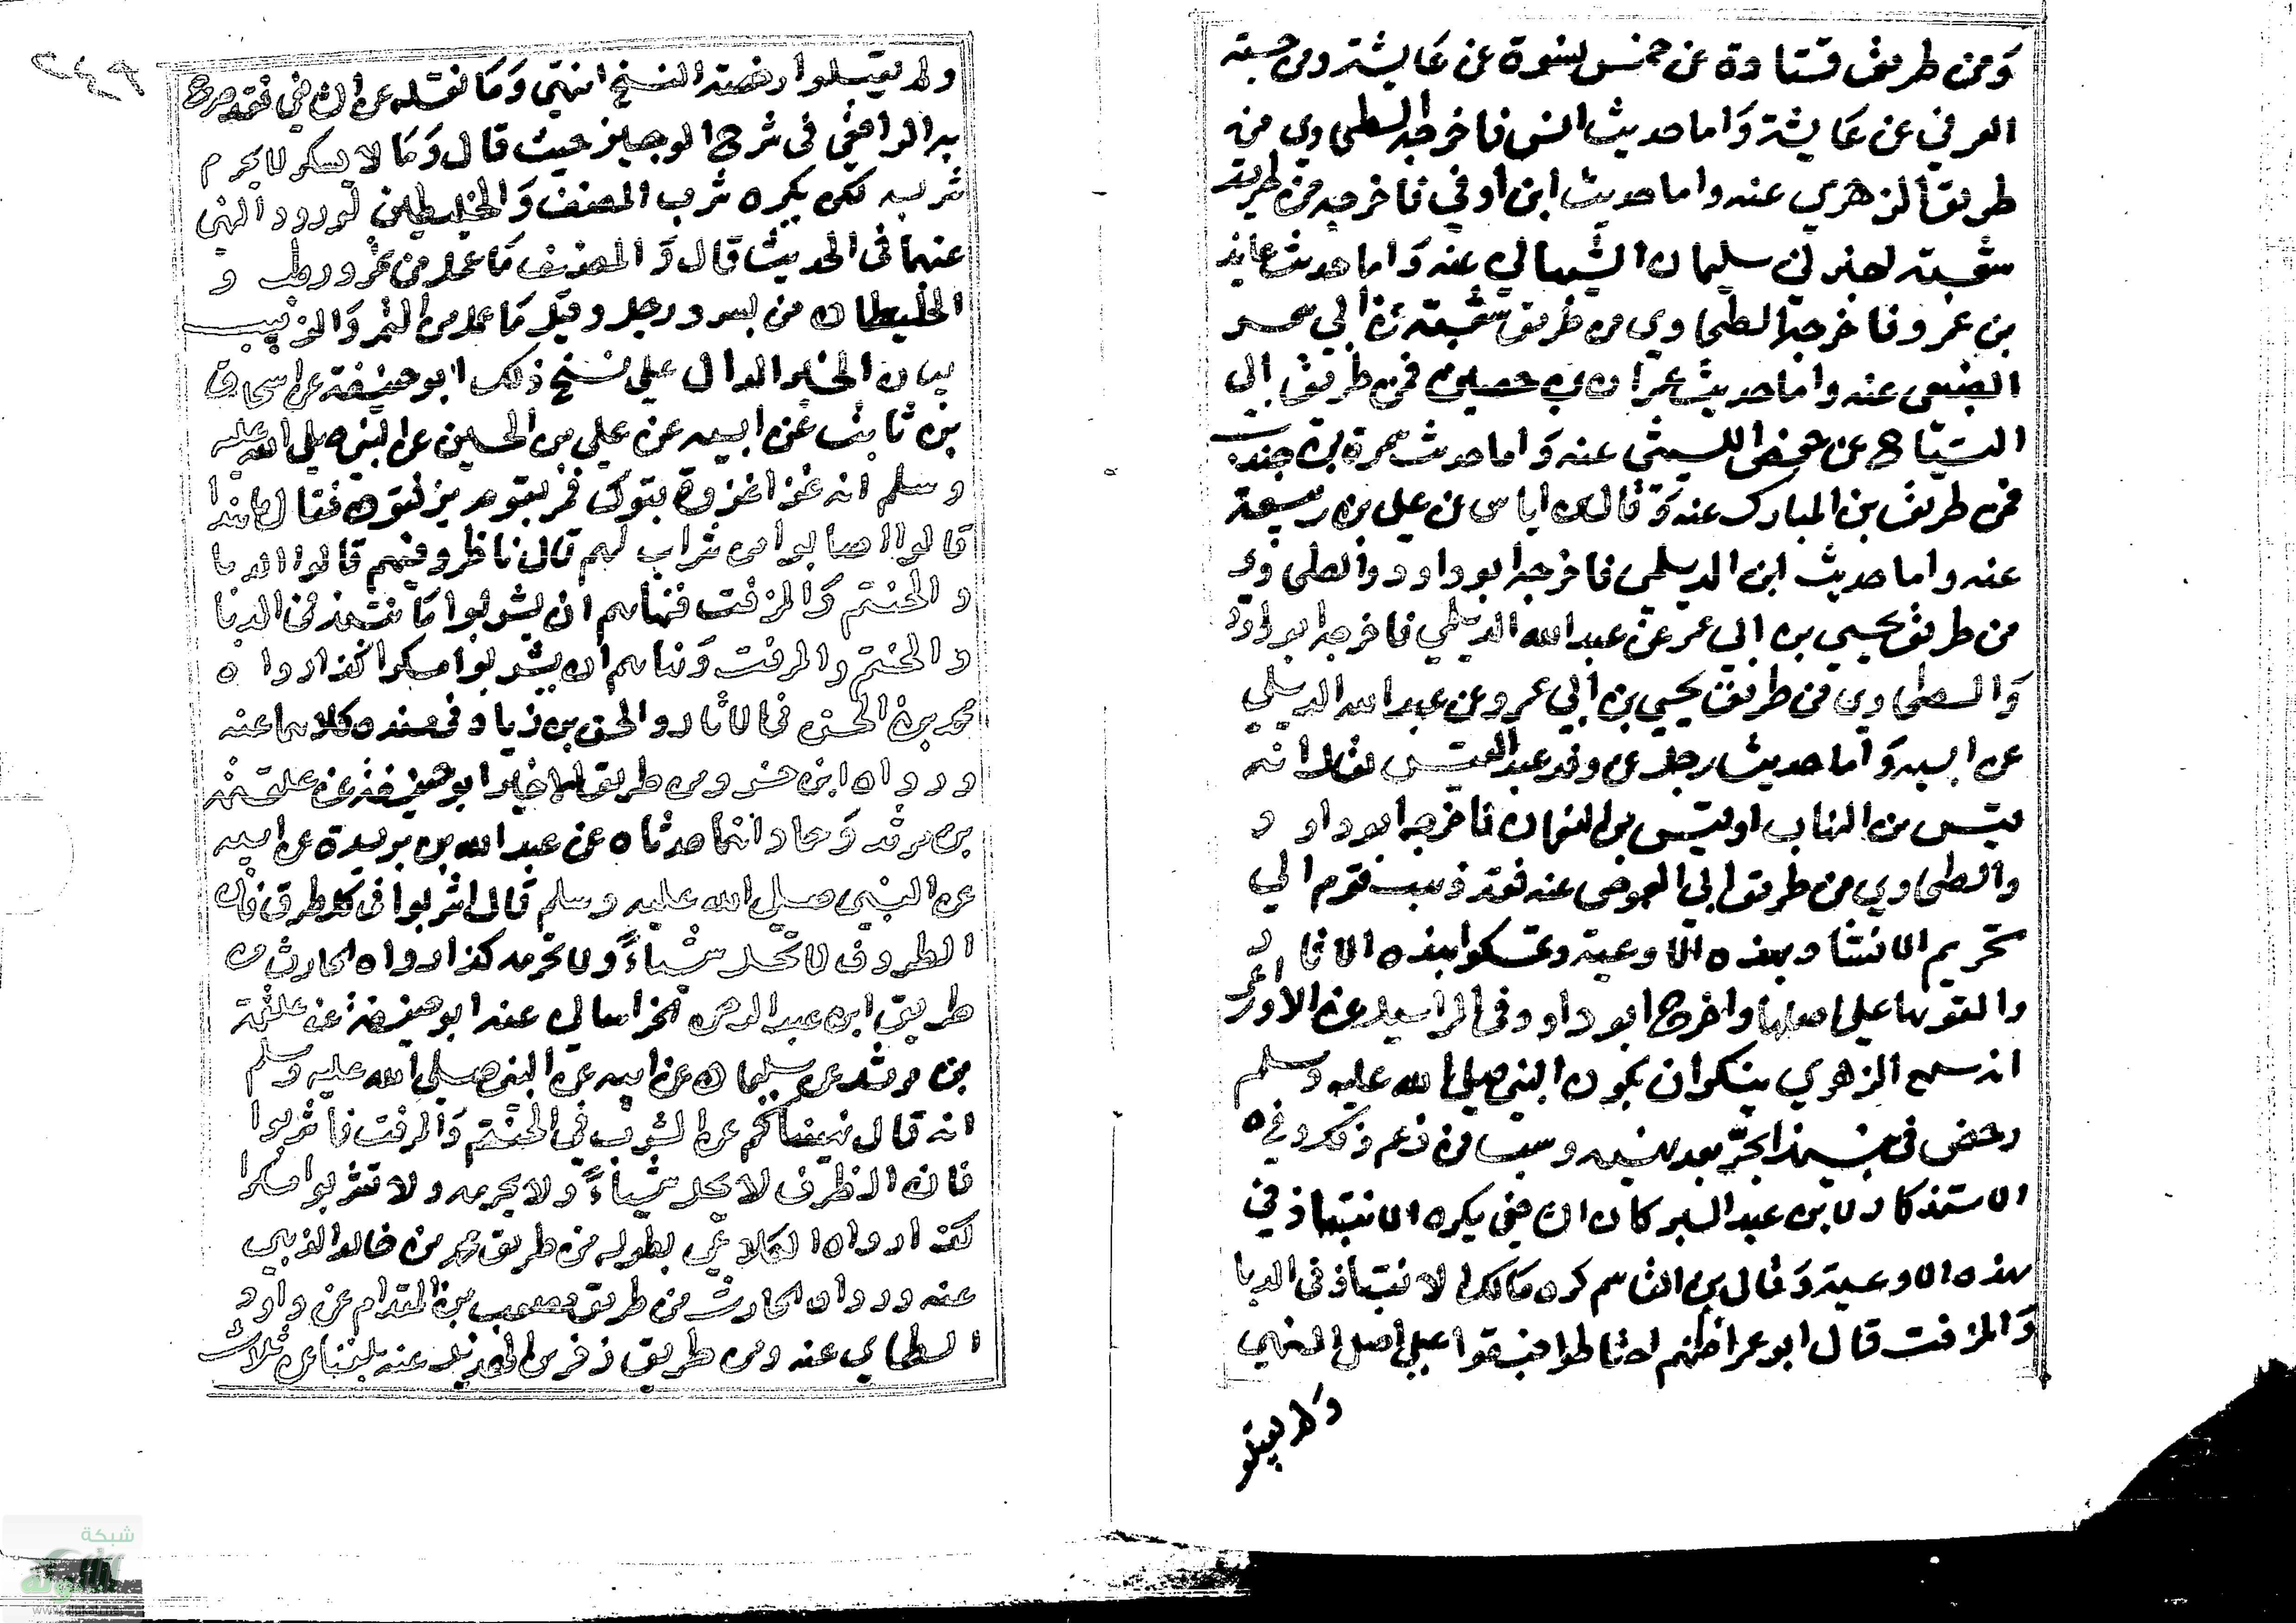 ومن طريق قتادة عن خمس نسوة عن عايشة ومن حبة
العرني عن عايشة واما حديث انس فاخرجه الطحاوي من
طريق الزهري عنه واما حديث ابن اوفي فاخرجه من طريق
شعبة اخبرني سليمان الشيباني عنه واما حديث عايد
بن عمرو فاخرجه الطحاوي من طريق شعبة عن ابي حمر
الضبعي عنه واما حديث عمران بن حصين فمن طريق ابي
التياح عن حفص الليثي عنه واما حديث سمرة بن جندب
فمن طريق بن المبارك عنه وقال بن اياس بن علي بن ربيعة
عنه واما حديث ابن الديلمي فاخرجه ابو داود والطحاوي
من طريق يحيي بن ابي عمر عن عبد الله الديلمي فاخرجه ابو داود
والطحاوي من طريق يحيي بن ابي عمرو عن عبد الله الديلمي
عن ابيه واما حديث رجل من وفد عبد القيس يقال انه
قيس بن النهاب او قيس بن النعمان فاخرجه ابو داود
والطحاوي من طريق ابي القموص عنه فقد ذهب قوم الي
تحريم الانتباذ بهذه الاوعية وتمسكوا بهذه الاثار
وابقوها علي اصلها واخرج ابو داود في المراسيل عن الاوزاعي
انه سمع الزهري ينكر ان يكون النبي صلي الله عليه وسلم
رخص في نبيذ الجر بعد نهيه وسب من زعم ذكر وفي
الاستذكار لابن عبد البر كان الشافعي يكره الانتباذ في
هذه الاوعية وقال بن القاسم كره مالك الانتباذ في الدبا
والمزفت قال ابو عمر اظنهم احتاطوا فبقوا علي اصل النهي
ولم يقبلوا
ولم يقبلوا رخصة النسخ انتهي وما نقله عن الشافعي فقد صرح
به الرافعي في شرح الوجيز حيث قال وما لا يسكر لا يحرم
شربه لكن يكره شرب المنصف والخليطين لورود النهي
عنهما في الحديث قال والمنصف ما عمل من تمر ورطب و
الخليطان من بسر ورطب وقيل ما عمل من التمر والزبيب
بيان الخبر الدال علي نسخ ذلك ابو حنيفة عن اسحاق
بن ثابت عن ابيه عن علي بن الحسين عن النبي صلي الله عليه
وسلم انه غزا غزوة تبوك فمر بقوم يزفتون فقال ما هذا
قالوا اصابوا من شراب لهم قال ما ظروفهم قالوا الدبا
والحنتم والمزفت فنهاهم ان يشربوا ما نتبذ في الدبا
والحنتم والمزفت ونهاهم ان يشربوا مسكرا كذا رواه
محمد بن الحسن في الاثار والحسن بن زياد في مسنده كلاهما عنه
ورواه ابن خسرو من طريق الاخير ابو حنيفة عن علقمة
بن مرثد وحماد انهما حدثاه عن عبد الله بن بريدة عن ابيه
عن النبي صلي الله عليه وسلم قال اشربوا في كل ظرف فان
الظروف لا تحل شياءً ولا تحرمه كذا رواه الحارث من
طريق ابن عبد الرحمن الخراساني عنه ابو حنيفة عن علقمة
بن مرثد عن سليمان عن ابيه عن النبي صلي الله عليه وسلم
انه قال نهيناكم عن الشرب في الحنتم والمزفت فاشربوا
فان الظرف لا يحل شياءً ولا يحرمه ولا تشربوا مسكرا
كذا رواه الكلاعي بطوله من طريق محمد بن خالد الذهبي
عنه ورواه الحارث من طريق مصعب بن المقدام عن داود
الطائي عنه ومن طريق زفر بن الهذيل عنه بلفظ عن ثلاث